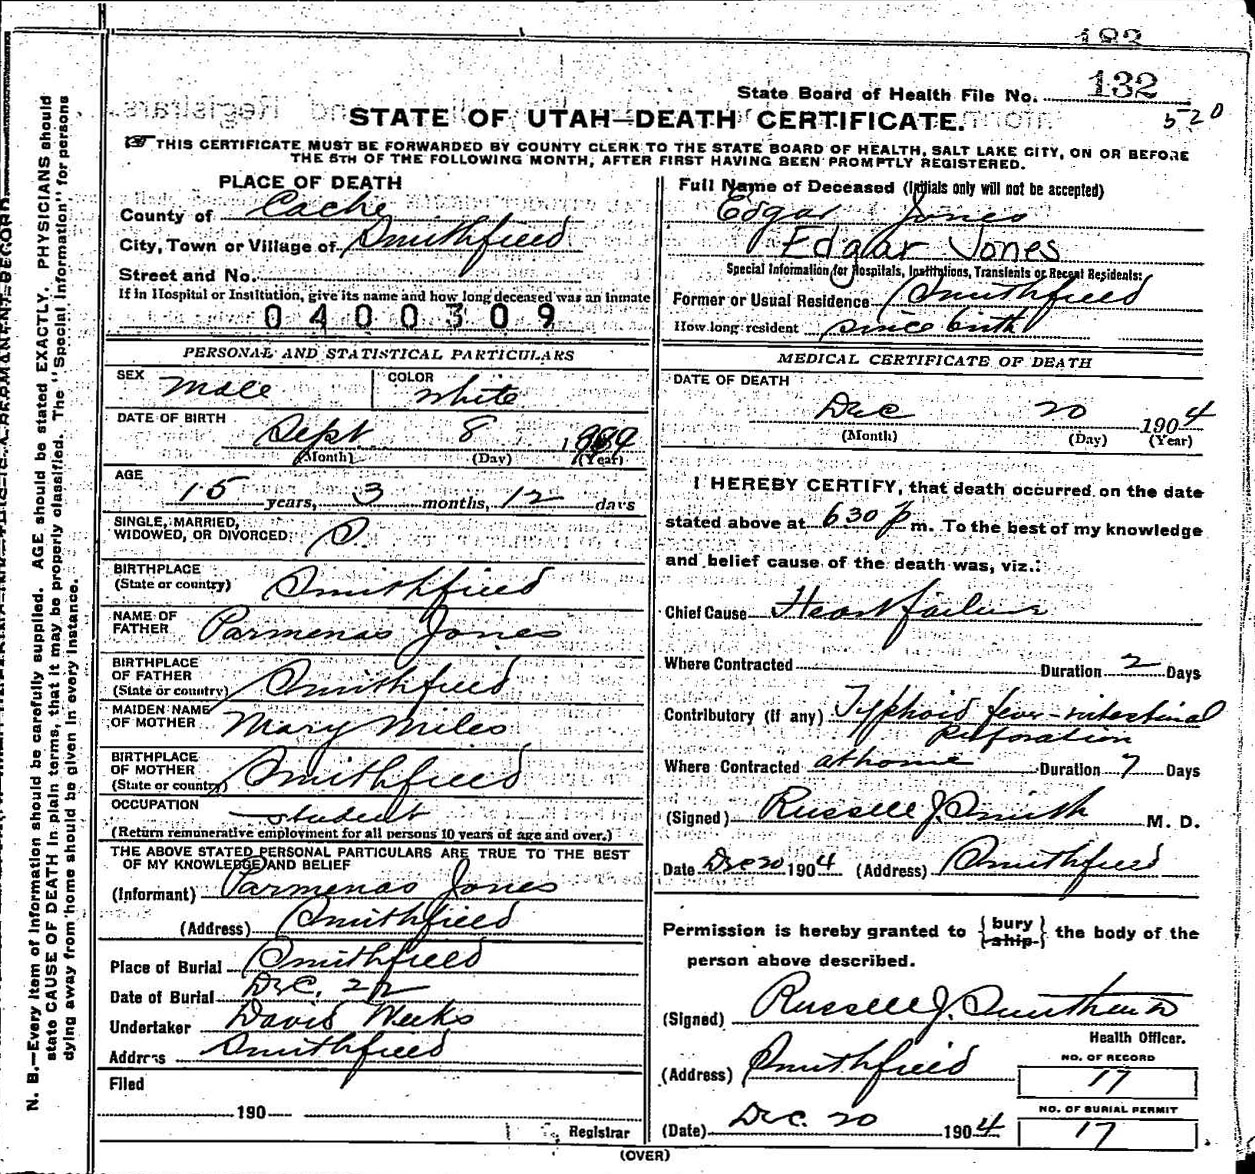 183
State Board of Health File No. 132
520
STATE OF UTAH—DEATH CERTIFICATE.
☞ THIS CERTIFICATE MUST BE FORWARDED BY COUNTY CLERK TO THE STATE BOARD OF HEALTH, SALT LAKE CITY, ON OR BEFORE
THE 5TH OF THE FOLLOWING MONTH, AFTER FIRST HAVING BEEN PROMPTLY REGISTERED.
N. B.—Every item of information should be carefully supplied. AGE should be stated EXACTLY. PHYSICIANS should
state CAUSE OF DEATH in plain terms, that it may be properly classified. The "Special Information" for persons
dying away from home should be given in every instance.
PLACE OF DEATH
County of Cache
City, Town or Village of Smithfield
Street and No.
If in Hospital or Institution, give its name and how long deceased was an inmate
0400309
PERSONAL AND STATISTICAL PARTICULARS
SEX Male COLOR White
DATE OF BIRTH Sept 8 1889
(Month) (Day) (Year)
AGE
15 years, 3 months, 12 days
SINGLE, MARRIED,
WIDOWED, OR DIVORCED: S.
BIRTHPLACE
(State or country) Smithfield
NAME OF
FATHER Parmenas Jones
BIRTHPLACE
OF FATHER
(State or country) Smithfield
MAIDEN NAME
OF MOTHER Mary Miles
BIRTHPLACE
OF MOTHER
(State or country) Smithfield
OCCUPATION student
(Return remunerative employment for all persons 10 years of age and over.)
THE ABOVE STATED PERSONAL PARTICULARS ARE TRUE TO THE BEST
OF MY KNOWLEDGE AND BELIEF
(Informant) Parmenas Jones
(Address) Smithfield
Place of Burial Smithfield
Date of Burial Dec. 22
Undertaker David Weeks
Address Smithfield
Filed
190
Registrar
Full Name of Deceased (Initials only will not be accepted)
Edgar Jones
Edgar Jones
Special Information for Hospitals, Institutions, Transients or Recent Residents:
Former or Usual Residence Smithfield
How long resident since birth
MEDICAL CERTIFICATE OF DEATH
DATE OF DEATH
Dec 20 1904
(Month) (Day) (Year)
I HEREBY CERTIFY, that death occurred on the date
stated above at 630 p m. To the best of my knowledge
and belief cause of the death was, viz.:
Chief Cause Heart failure
Where Contracted Duration 2 Days
Contributory (if any) Typhoid fever-intestinal
perforation
Where Contracted at home Duration 7 Days
(Signed) Russell J. Smith M. D.
Date Dec 20 1904 (Address) Smithfield
Permission is hereby granted to {bury
ship} the body of the
person above described.
(Signed) Russell J. Smith
Health Officer.
(Address) Smithfield
NO. OF RECORD
17
(Date) Dec. 20 1904
NO. OF BURIAL PERMIT
17
(OVER)